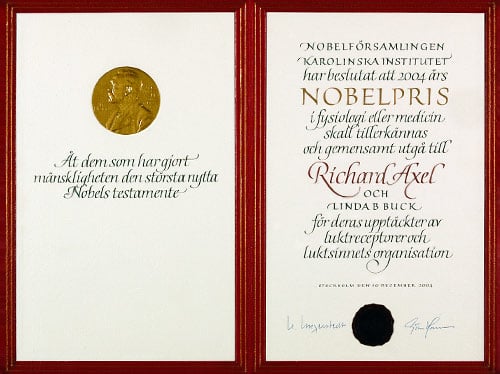 Åt dem som har gjort
mänskligheten den största nytta
Nobels testamente
NOBELFÖRSAMLINGEN
KAROLINSKA INSTITUTET
har beslutat att 2004 års
NOBELPRIS
i fysiologi eller medicin
skall tillerkännas
och gemensamt utgå till
Richard Axel
OCH
LINDA B BUCK
för deras upptäckter av
luktreceptorer och
luktsinnets organisation
STOCKHOLM DEN 10 DEZEMBER 2004